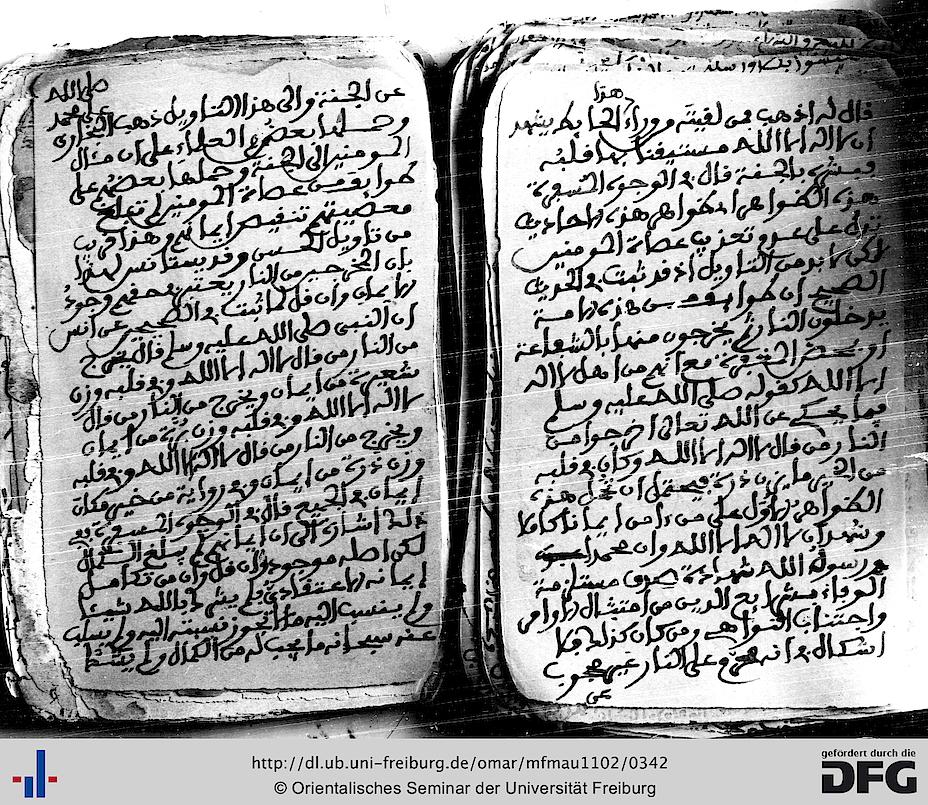 هذا
قال له اذهب فمن لقيته وراء الحائط يشهد
ان لا اله الا الله مستيقنا بها قلبه
فبشره بالجنة قال
هذه الظواهر
تدل على عدم تعذيب عصاة المومنين
لكن لا بد من التاويل اذ قد ثبت في الحديث
الصحيح ان طوايف من هذه الامة
يدخلون النار ثم يخرجون منها بالشفاعة
مع انهم من اهل لا اله
الا الله كقوله صلى الله عليه وسلم
فيما يحكي عن الله تعالى اخرجوا من
النار من قال لا اله الا الله وكان في قلبه
من الخير ما يزن ذرة فيحتمل ان تحمل هذه
الظواهر الاول على من ءامن ايمانا كاملا
وشهد ان لا اله الا الله وان محمدا
رسول الله شهادة صدق مستلزمة
الوفاء بشرايع الدين من امتثال الاوامر
واجتناب النواهي ومن كان كذلك فلا
اشكال في انه على النار غير محجوب
عن
عن الجنة والى هذا التاويل ذهب البخاري
صلى الله
على محمد
وحملها بعض العلماء على ان مئال
المومنين الى الجنة وحملها بعضهم على
طوايف من عصاة المومنين لم تبلغ
معصيتهم تنقيص ايمانهم وهذا قريب
من تاويل الحسن وقد يستانس لهذا
بان
الايمان وان قل كما ثبت في الصحيح عن انس
ان النبي صلى الله عليه وسلم قال يخرج
من النار من قال لا اله الا الله وفي قلبه وزن
شعيرة من ايمان ويخرج من النار من قال
لا اله الا الله وفي قلبه وزن برة من ايمان
ويخرج من النار من قال لا اله الا الله وفي قلبه
وزن ذرة من ايمان وفي رواية من خير مكان
ايمان في الجميع قال
ذلك اشارة الى ان ايمانهم لم يبلغ الكمال
لكن اصله موجود وان قل وان من تكامل
ايمانه الاعتقادي فلم يشرك بالله شيئا
ولم ينسب اليه ما لا تجوز نسبته اليه ولم يسلب
عنه سبحانه ما يجب له من الكمال ولم
http://dl.ub.uni-freiburg.de/omar/mfmau1102/0342
© Orientalisches Seminar der Universität Freiburg
gefördert durch die
DFG